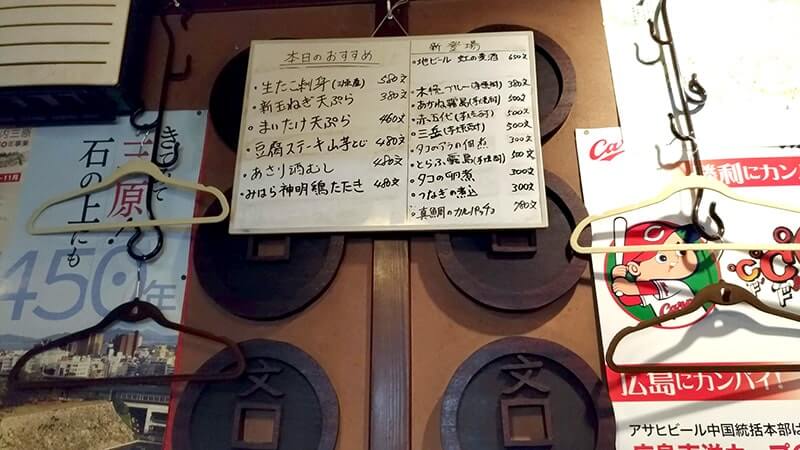 本日のおすすめ
・生たこ刺身(三原産) 580文
・新玉ねぎ天ぷら 380文
・まいたけ天ぷら 460文
・豆腐ステーキ山芋とじ 480文
・あさり酒むし 480文
・みはら神明鶏たたき 480文
新登場
・地ビール 虹の麦酒 650文
380文
・あかね霧島 500文
500文
・三岳 300文
・とらふ霧島 500文
・タコの卵煮 300文
・つなぎの煮込 300文
・真鯛のカルパッチョ 780文
きて
三原!
石の上にも
450年
文
文
勝利にカンパ
Carp
広島にカンパイ!
アサヒビール中国統括本部は